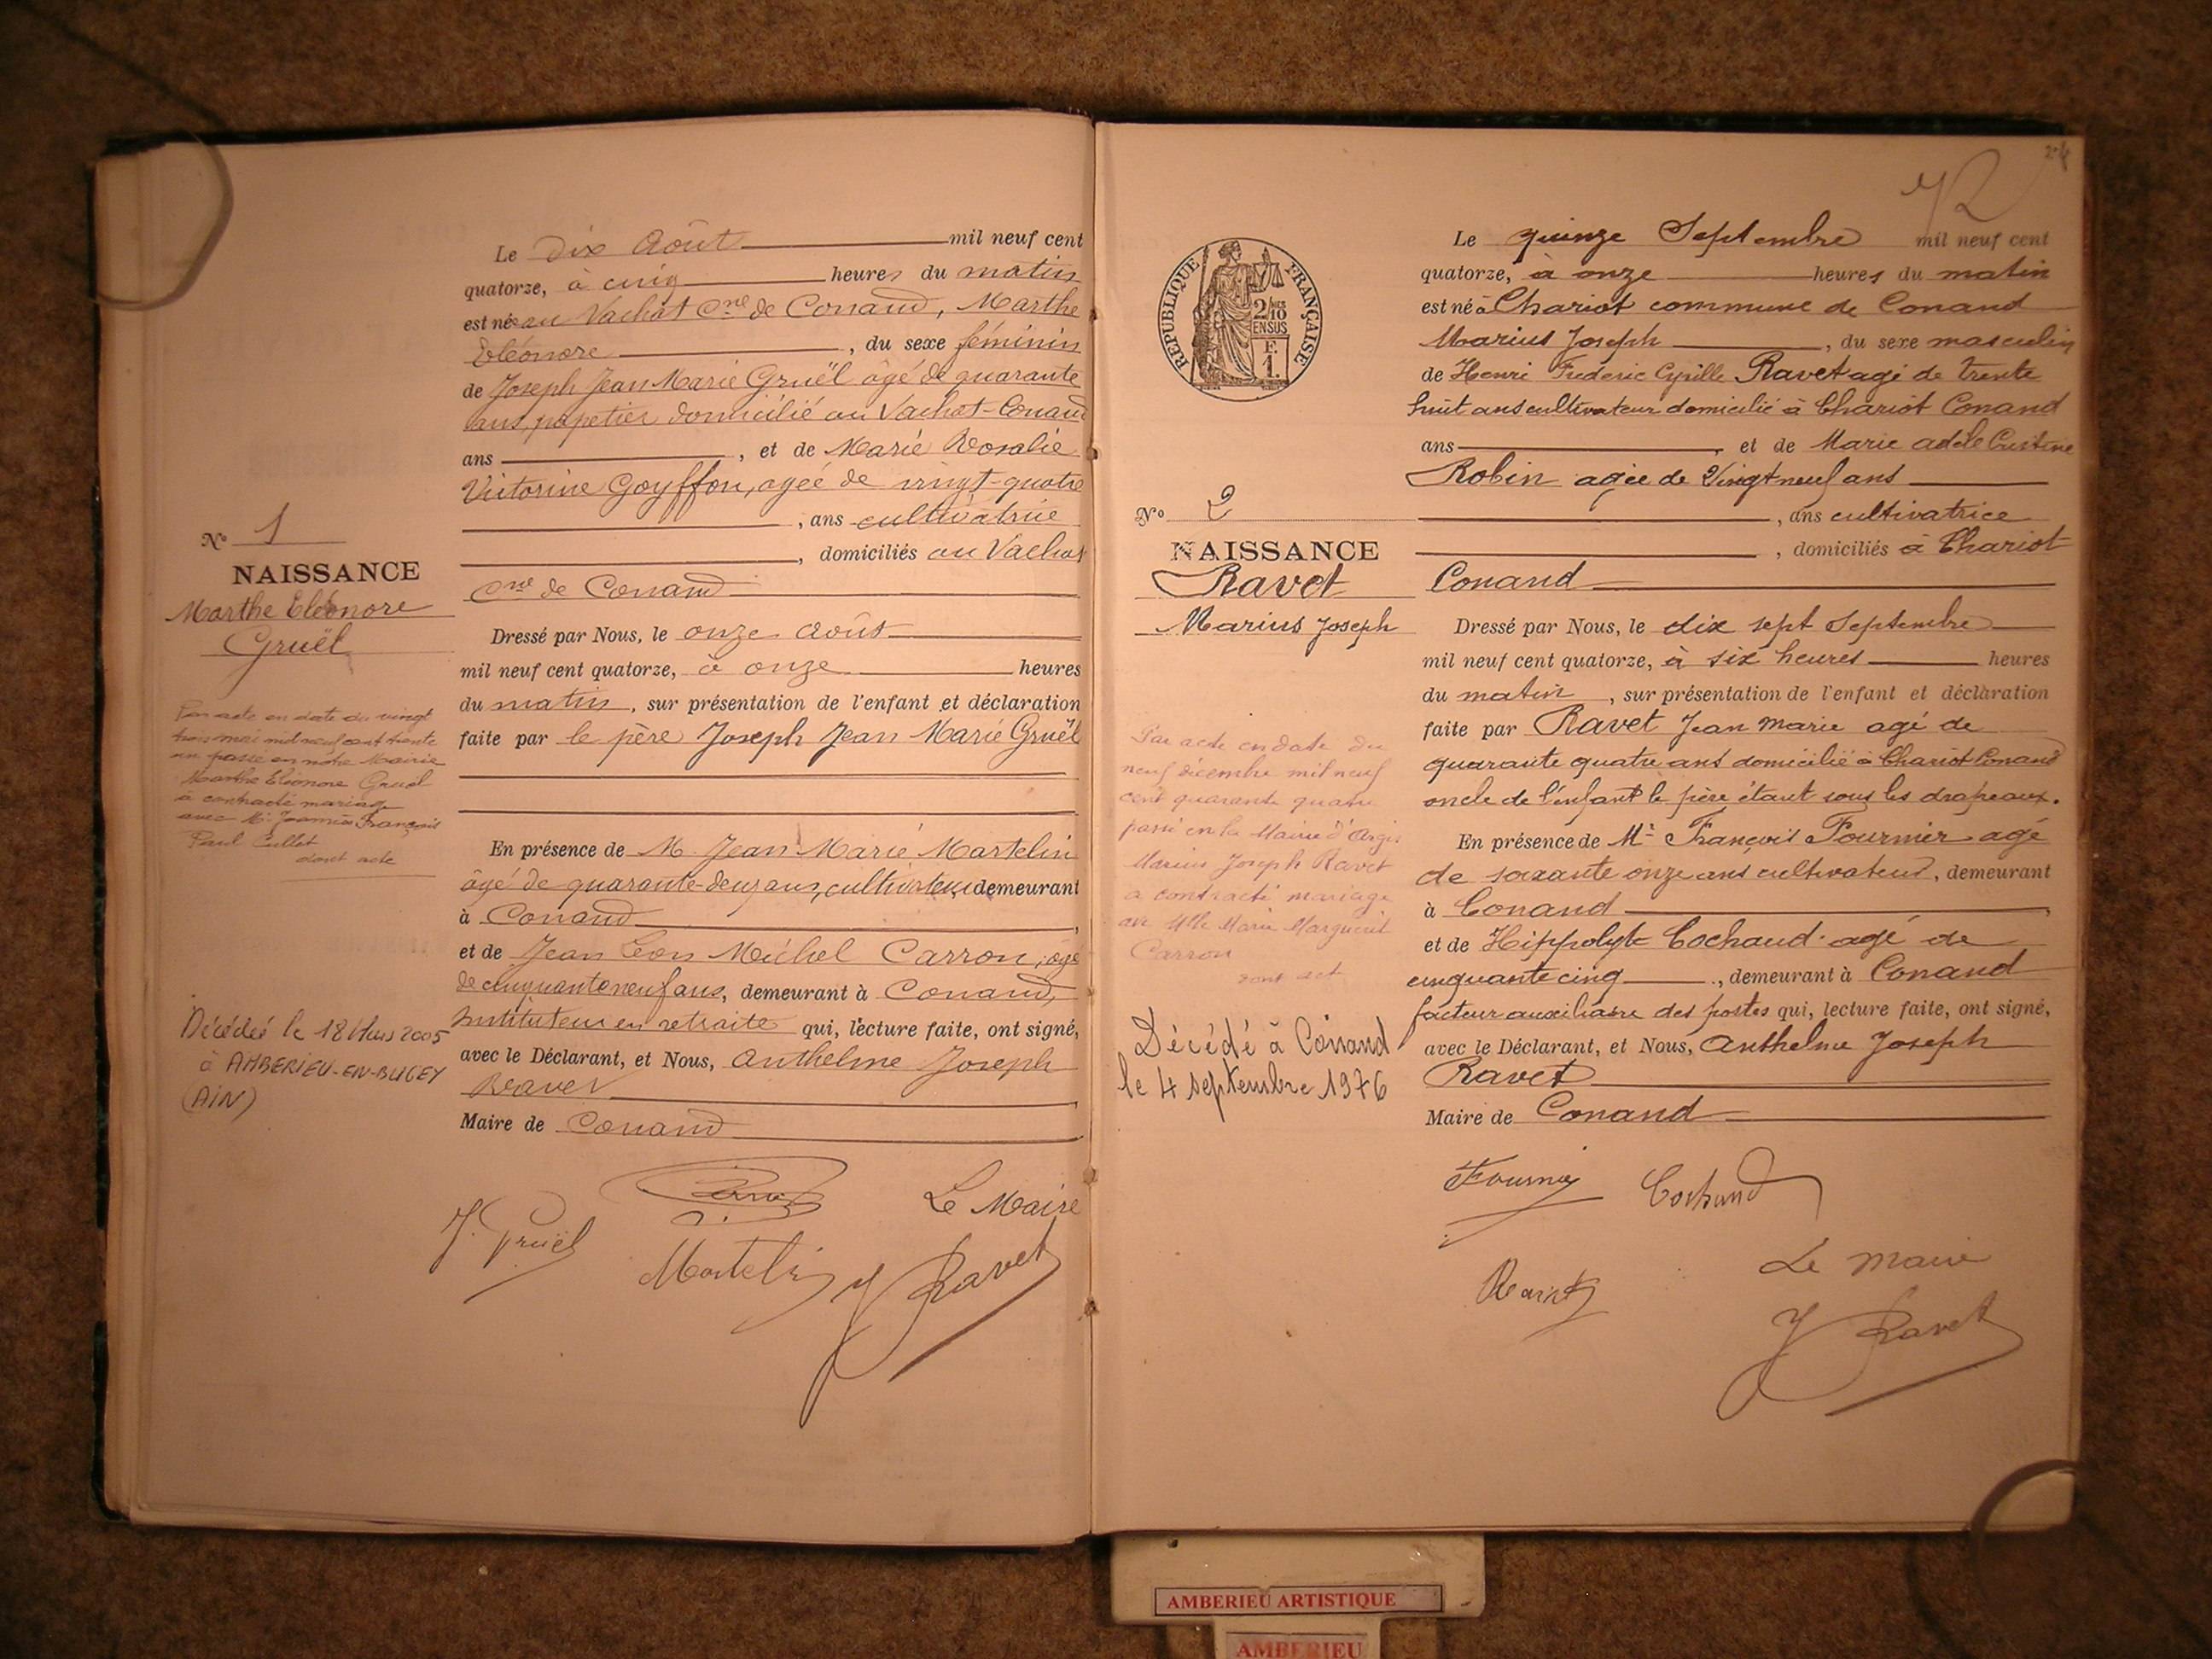 Le dix Août mil neuf cent
quatorze, à cinq heures du matin
est née au Vachat Cne de Conand, Marthe
Eléonore, du sexe féminin
de Joseph Jean Marie Gruël âgé de quarante
ans, papetier domicilié au Vachat-Conand
ans, et de Marie Rosalie
Victorine Goyffon, agée de vingt-quatre
, ans cultivatrice
, domiciliés au Vachat
Cne de Conand
No 1
NAISSANCE
Marthe Eléonore
Gruël
Dressé par Nous, le onze Août
mil neuf cent quatorze, à onze heures
du matin, sur présentation de l'enfant et déclaration
faite par le père Joseph Jean Marie Gruël
Par acte en date du vingt
trois mai mil neuf cent trente
un passé en notre Mairie
Marthe Eléonore Gruël
à contracté mariage
avec Mr Joannès François
Paul Cullet
dont acte
En présence de M. Jean Marie Martelin
âgé de quarante-deux ans, cultivateur demeurant
à Conand,
et de Jean Léon Michel Carron, âgé
de cinquante neuf ans, demeurant à Conand,
instituteur en retraite qui, lecture faite, ont signé,
avec le Déclarant, et Nous, Anthelme Joseph
Ravet
Maire de Conand
Décédée le 18 Mars 2005
à AMBERIEU-EN-BUGEY
(AIN)
Le Maire
J. Gruël
Martelin
J Ravet
24
RÉPUBLIQUE FRANÇAISE
2/10
EN SUS
F.
1.
Le quinze Septembre mil neuf cent
quatorze, à onze heures du matin
est né à Chariot commune de Conand
Marius Joseph, du sexe masculin
de Henri Frederic Cyrille Ravet agé de trente
huit ans cultivateur domicilié à Chariot Conand
ans, et de Marie adèle
Robin agée de Vingt neuf ans
, ans cultivatrice
, domiciliés à Chariot
Conand
No 2
NAISSANCE
Ravet
Marius Joseph
Dressé par Nous, le dix sept Septembre
mil neuf cent quatorze, à six heures heures
du matin, sur présentation de l'enfant et déclaration
faite par Ravet Jean Marie agé de
quarante quatre ans domicilié à Chariot Conand
oncle de l'enfant le père étant sous les drapeaux.
Par acte en date du
neuf décembre mil neuf
cent quarante quatre
passé en la Mairie d'Argis
Marius Joseph Ravet
a contracté mariage
avec Mlle Marie Marguerite
Carron
dont acte
En présence de Mr François Fournier agé
de soixante onze ans cultivateur, demeurant
à Conand,
et de Hippolyte Cochaud agé de
cinquante cinq, demeurant à Conand
facteur auxiliaire des postes qui, lecture faite, ont signé,
avec le Déclarant, et Nous, Anthelme Joseph
Ravet
Maire de Conand
Décédé à Conand
le 4 septembre 1976
Fournier Cochaud
Ravet
Le Maire
J Ravet
AMBERIEU ARTISTIQUE
AMBERIEU